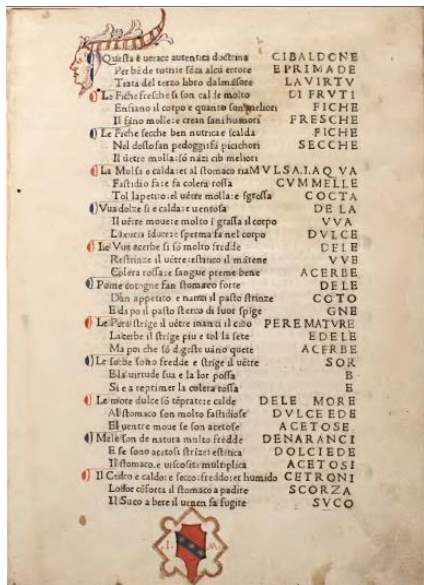 Questa è uerace autentica doctrina CIBALDONE
Per bē de tutti e sēza alcū errore EPRIMADE
Trata del terzo libro dalmāsore LAVIRTV
Le Fiche fresche si son calde molto DI FRVTI
Enfiano il corpo e quanto son meliori FICHE
Il fāno molle: e crean sani humori FRESCHE
Le Fiche secche ben nutrica e scalda FICHE
Nel dosso fan pedoggi: fa picichori SECCHE
Il uētre molla: sō nāzi cib meliori
La Mulsa e calda: et al stomaco ria MVLSA.I.AQVA
Fastidio fa: e fa colera rossa CVMMELLE
Tol lapetito: el uētre molla: e sgrossa COCTA
Vua dolze si e calda: e uentosa DE LA
Il uētre moue: e molto ī grassa il corpo VVA
La curia īduce: e sperma fa nel corpo DVLCE
Le Vue acerbe si sō molto fredde DELE
Restrinze il uētre: estinco il mātene VVE
Colera rossa: e sangue preme bene ACERBE
Pome cotogne fan stomaco forte DELE
Dan appetito e nanti il pasto strinze COTO
E da poi il pasto sterco di fuor spige GNE
Le Pere strige il uētre inanti il cibo PERE MATVRE
Lacerbe il strige piu e tol la sete EDELE
Ma poi che sō digeste uāno quete ACERBE
Le sorbe sono fredde e strige il uētre SOR
E la uirtude sua e la lor possa B
Si e a reprimer la colera rossa E
Le more dulce sō tēprate: e calde DELE MORE
Al stomaco son molto fastidiose DVLCE EDE
El uentre moue se son acetose ACETOSE
Mele son de natura molto fredde DENARANCI
E se sono acetosi strize: e stitica DOLCI EDE
Il stomaco, e uiscosita multiplica ACETOSI
Il Cedro e caldo: e secco: freddo: et humido CETRONI
Lossor cōforta il stomaco a padire SCORZA
Il Suco a bere il uenen fa fugire SVCO
.I. M